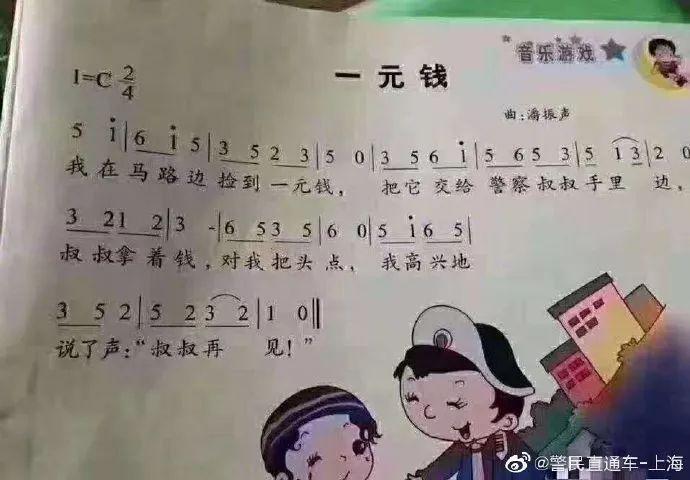 音乐游戏
一元钱
1=C 2/4
曲:潘振声
5 i|6 i 5|3 5 2 3|5 0|3 5 6 i|5 6 5 3|5 1 3|2 0
我在马路边捡到一元钱，把它交给警察叔叔手里边，
3 2 1 2|3 -|6 5 3 5|6 0|5 i 6 5|
叔叔拿着钱，对我把头点，我高兴地
3 5 2|5 2 3 2|1 0‖
说了声：“叔叔再见！”
@警民直通车-上海